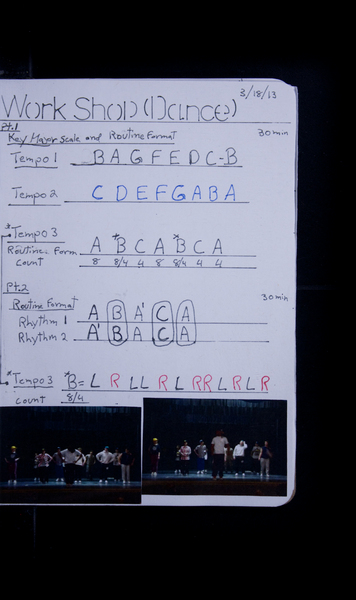 3/18/13
Work Shop (Dance)
Pt.1
Key Major Scale and Routine Format 30 min
Tempo 1 B A G F E D C - B
Tempo 2 C D E F G A B A
*Tempo 3
Routine Form A *B C A *B C A
Count 8 8/4 4 8 8/4 4 4
Pt.2
30 min
Routine Format
Rhythm 1 A B A' C A
Rhythm 2 A' B A C A
*Tempo 3 *B = L R L L R L R R L R L R
Count 8/4